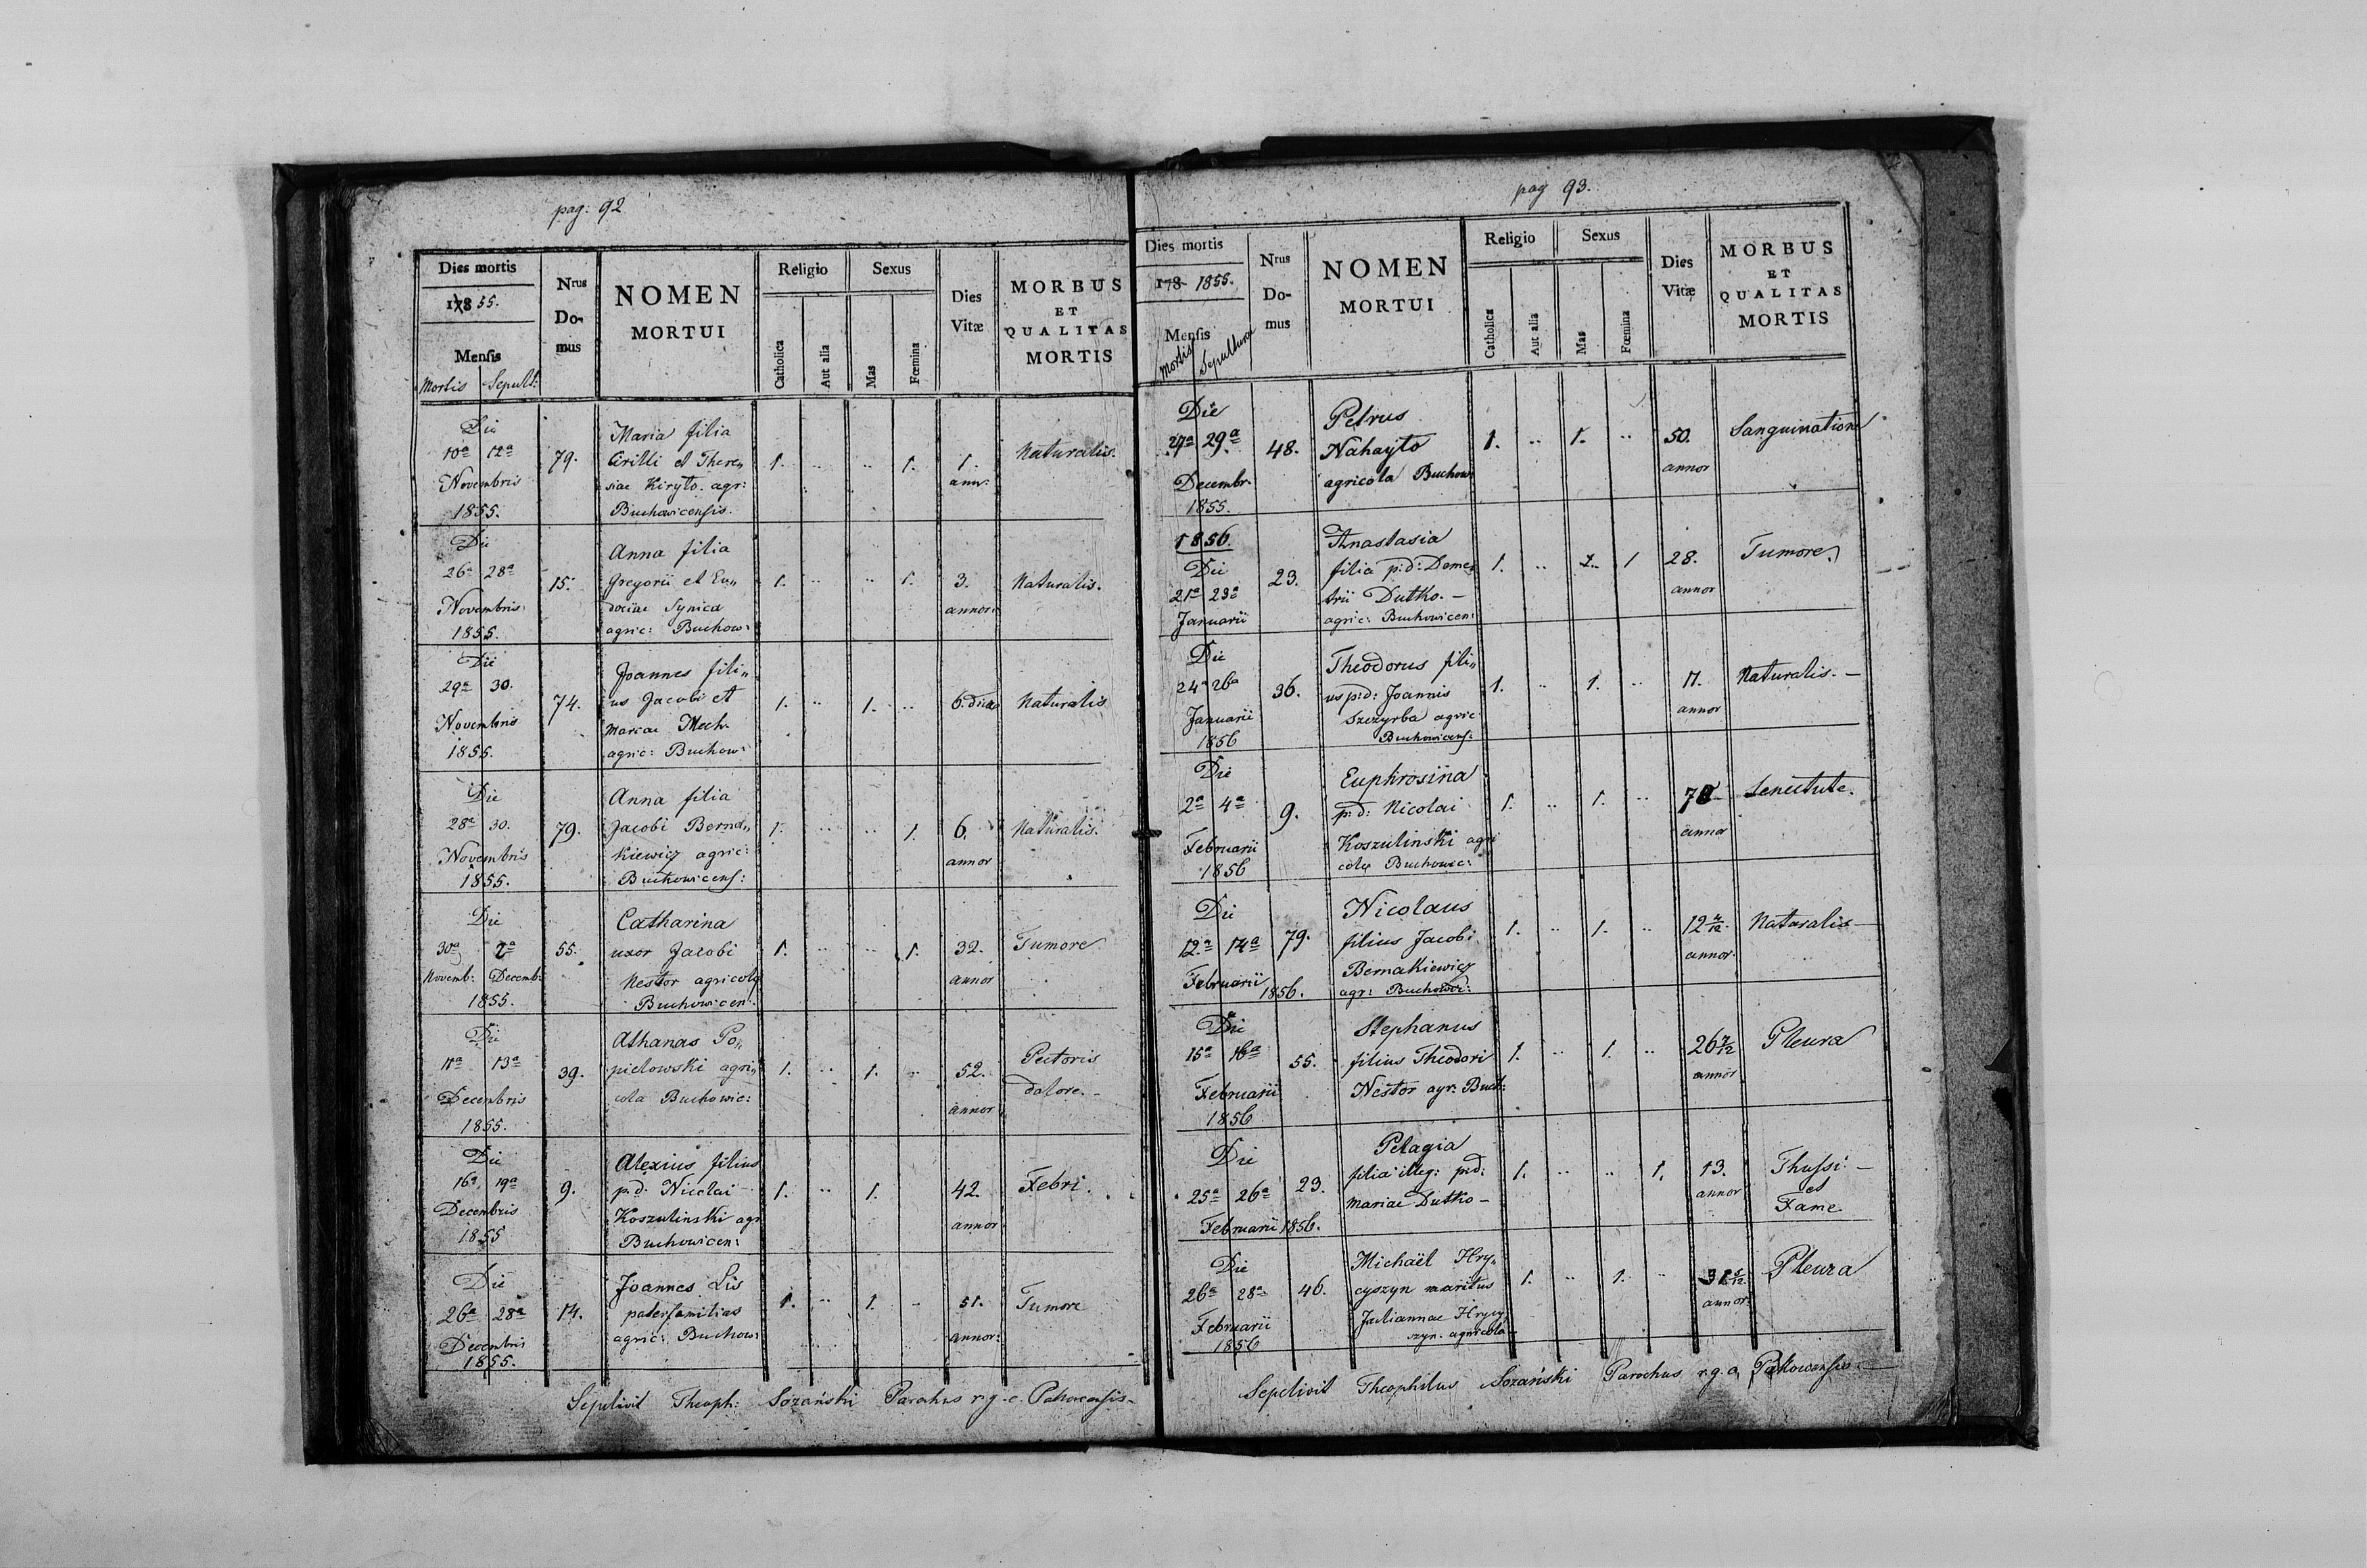 pag: 92
Dies mortis
178 55.
Mensis
Mortis Sepult:
Nrus Do- mus
NOMEN
MORTUI
Religio
Catholica
Aut alia
Sexus
Mas
Fœmina
Dies
Vitæ
MORBUS
ET
QUALITAS
MORTIS
Die
10ª 12ª
Novembris
1855.
79.
Maria filia
Cirilli et There„
siae Kiryto. agr:
Buchowicensis.
1. .. .. 1.
1.
ann:
Naturalis.
Die
26ª 28ª
Novembris
1855.
15.
Anna filia
Gregorii et Eu„
dociae Synica
agric: Buchow:
1. .. .. 1.
3.
annor:
Naturalis.
Die
29ª 30.
Novembris
1855.
74.
Joannes fili„
us Jacobi et
Mariae Mech.
agric: Buchow:
1. .. 1. ..
6. dies
Naturalis
Die
28ª 30.
Novembris
1855.
79.
Anna filia
Jacobi Berna„
kiewicz agric:
Buchowicens:
1. .. .. 1.
6.
annor
Naturalis.
Die
30ª 2ª
Novemb: Decemb:
1855.
55.
Catharina
uxor Jacobi
Nestor agricolę
Buchowicen:
1. .. .. 1.
32.
annor
Tumore
Die
11ª 13ª
Decembris
1855.
39.
Athanas Po„
pielowski agri„
cola Buchowic:
1. .. 1. ..
52.
annor
Pectoris
dolore.
Die
16ª 19ª
Decembris
1855
9.
Alexius filius
p.d. Nicolai
Koszulinski agr
Buchowicen:
1. .. 1.
42.
annor
Febri.
Die
26ª 28ª
Decembris
1855.
14.
Joannes Lis
paterfamilias
agric: Buchow:
1. .. 1. ..
51.
annor:
Tumore
Sepelivit Theoph: Sozański Parochus r. g. c.
pag 93.
Dies mortis
178 1855.
Mensis
Mortis Sepulturæ
Nrus
Do-
mus
NOMEN
MORTUI
Religio
Catholica
Aut alia
Sexus
Mas
Fœmina
Dies
Vitæ
MORBUS
ET
QUALITAS
MORTIS
Die
27ª 29ª
Decembr.
1855.
48.
Petrus
Nahayto
agricola Buchow
1. .. 1. ..
50.
annor
Sanguinatione
1856.
Die
21ª 23ª
Januarii
23.
Anastasia
filia p:d: Deme„
trii Dutko. –
agric: Buchowicen:
1. .. 1
28.
annor
Tumore
Die
24ª 26ª
Januarii
1856
36.
Theodorus fili„
us p:d: Joannis
Szczyrba agric
Buchowicens:
1. .. 1. ..
11.
annor
Naturalis. –
Die
2ª 4ª
Februarii
1856
9.
Euphrosina
p:d: Nicolai
Koszulinski agri
colę Buchowic:
1. .. 1. ..
annor
Senectute.
Die
12ª 14ª
Februarii 1856.
79.
Nicolaus
filius Jacobi
Bernakiewicz
agr: Buchowic:
1. .. 1. ..
12
annor.
Naturalis –
Die
15ª 16ª
Februarii
1856
55.
Stephanus
filius Theodori
Nestor agr. Buch:
1. .. 1. ..
26
annor
Pleura
Die
25ª 26ª
Februarii 1856.
23.
Pelagia
filia illeg: p:d:
Mariae Dutko –
1. .. .. 1.
13.
annor
Thussi –
et
Fame
Die
26ª 28ª
Februarii
1856
46.
Michaël Hry„
cyszyn maritus
Juliannae Hrycy
szyn. agricola
1. .. 1. ..
annor:
Pleura
Sepelivit Theophilus Sozański Parochus r. g. c.